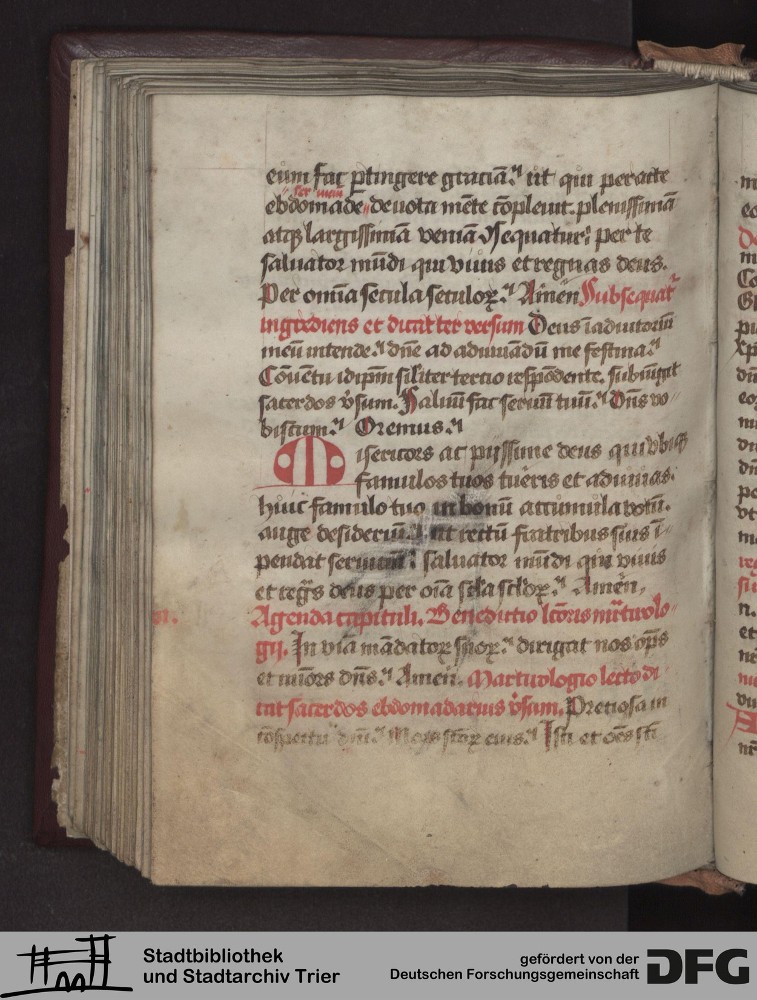 eum fac ꝑtingere graciã. ut qui peracte
ser uicii
ebdomade deuota mẽte cõpleuit. plenissimã
atqꝫ largissimã veniã ꝯsequatur. per te
saluator mũdi qui viuis et regnas deus.
Per omĩa secula seculoꝝ. Amen Subsequat᷑
ingrediens et dicat ter versum Deus ĩ adiutoriũ
meũ intende. dñe ad adiuuãdũ me festina.
Cõuẽtu idip̃m sil̃iter tercio respõdente. subiũgat
sacerdos v̉sum. Saluũ fac seruũ tuũ. Dñs vo
biscum. Oremus.
Misericors ac piissime deus qui vbiqꝫ
famulos tuos tueris et adiuuas.
huic famulo tuo in bonũ accumula votũ.
auge desideriũ. ut rectũ fratribus suis ĩ
pendat seruiciũ. saluator mũdi qui viuis
et regñs deus per oĩa sc̃la sc̃loꝝ. Amen.
Agenda capituli. Benedictio lc̃oris mr̃tirolo
gij. In viã mãdatoꝝ suoꝝ. dirigat nos op̃s
et miĩors dñs. Amen. Martirologio lecto di
cat sacerdos ebdomadarius v̉sum. Preciosa in
cõspectu dñi. Mors sc̃oꝝ eius. Isti et oẽs sc̃i
Stadtbibliothek
und Stadtarchiv Trier
gefördert von der
Deutschen Forschungsgemeinschaft
DFG